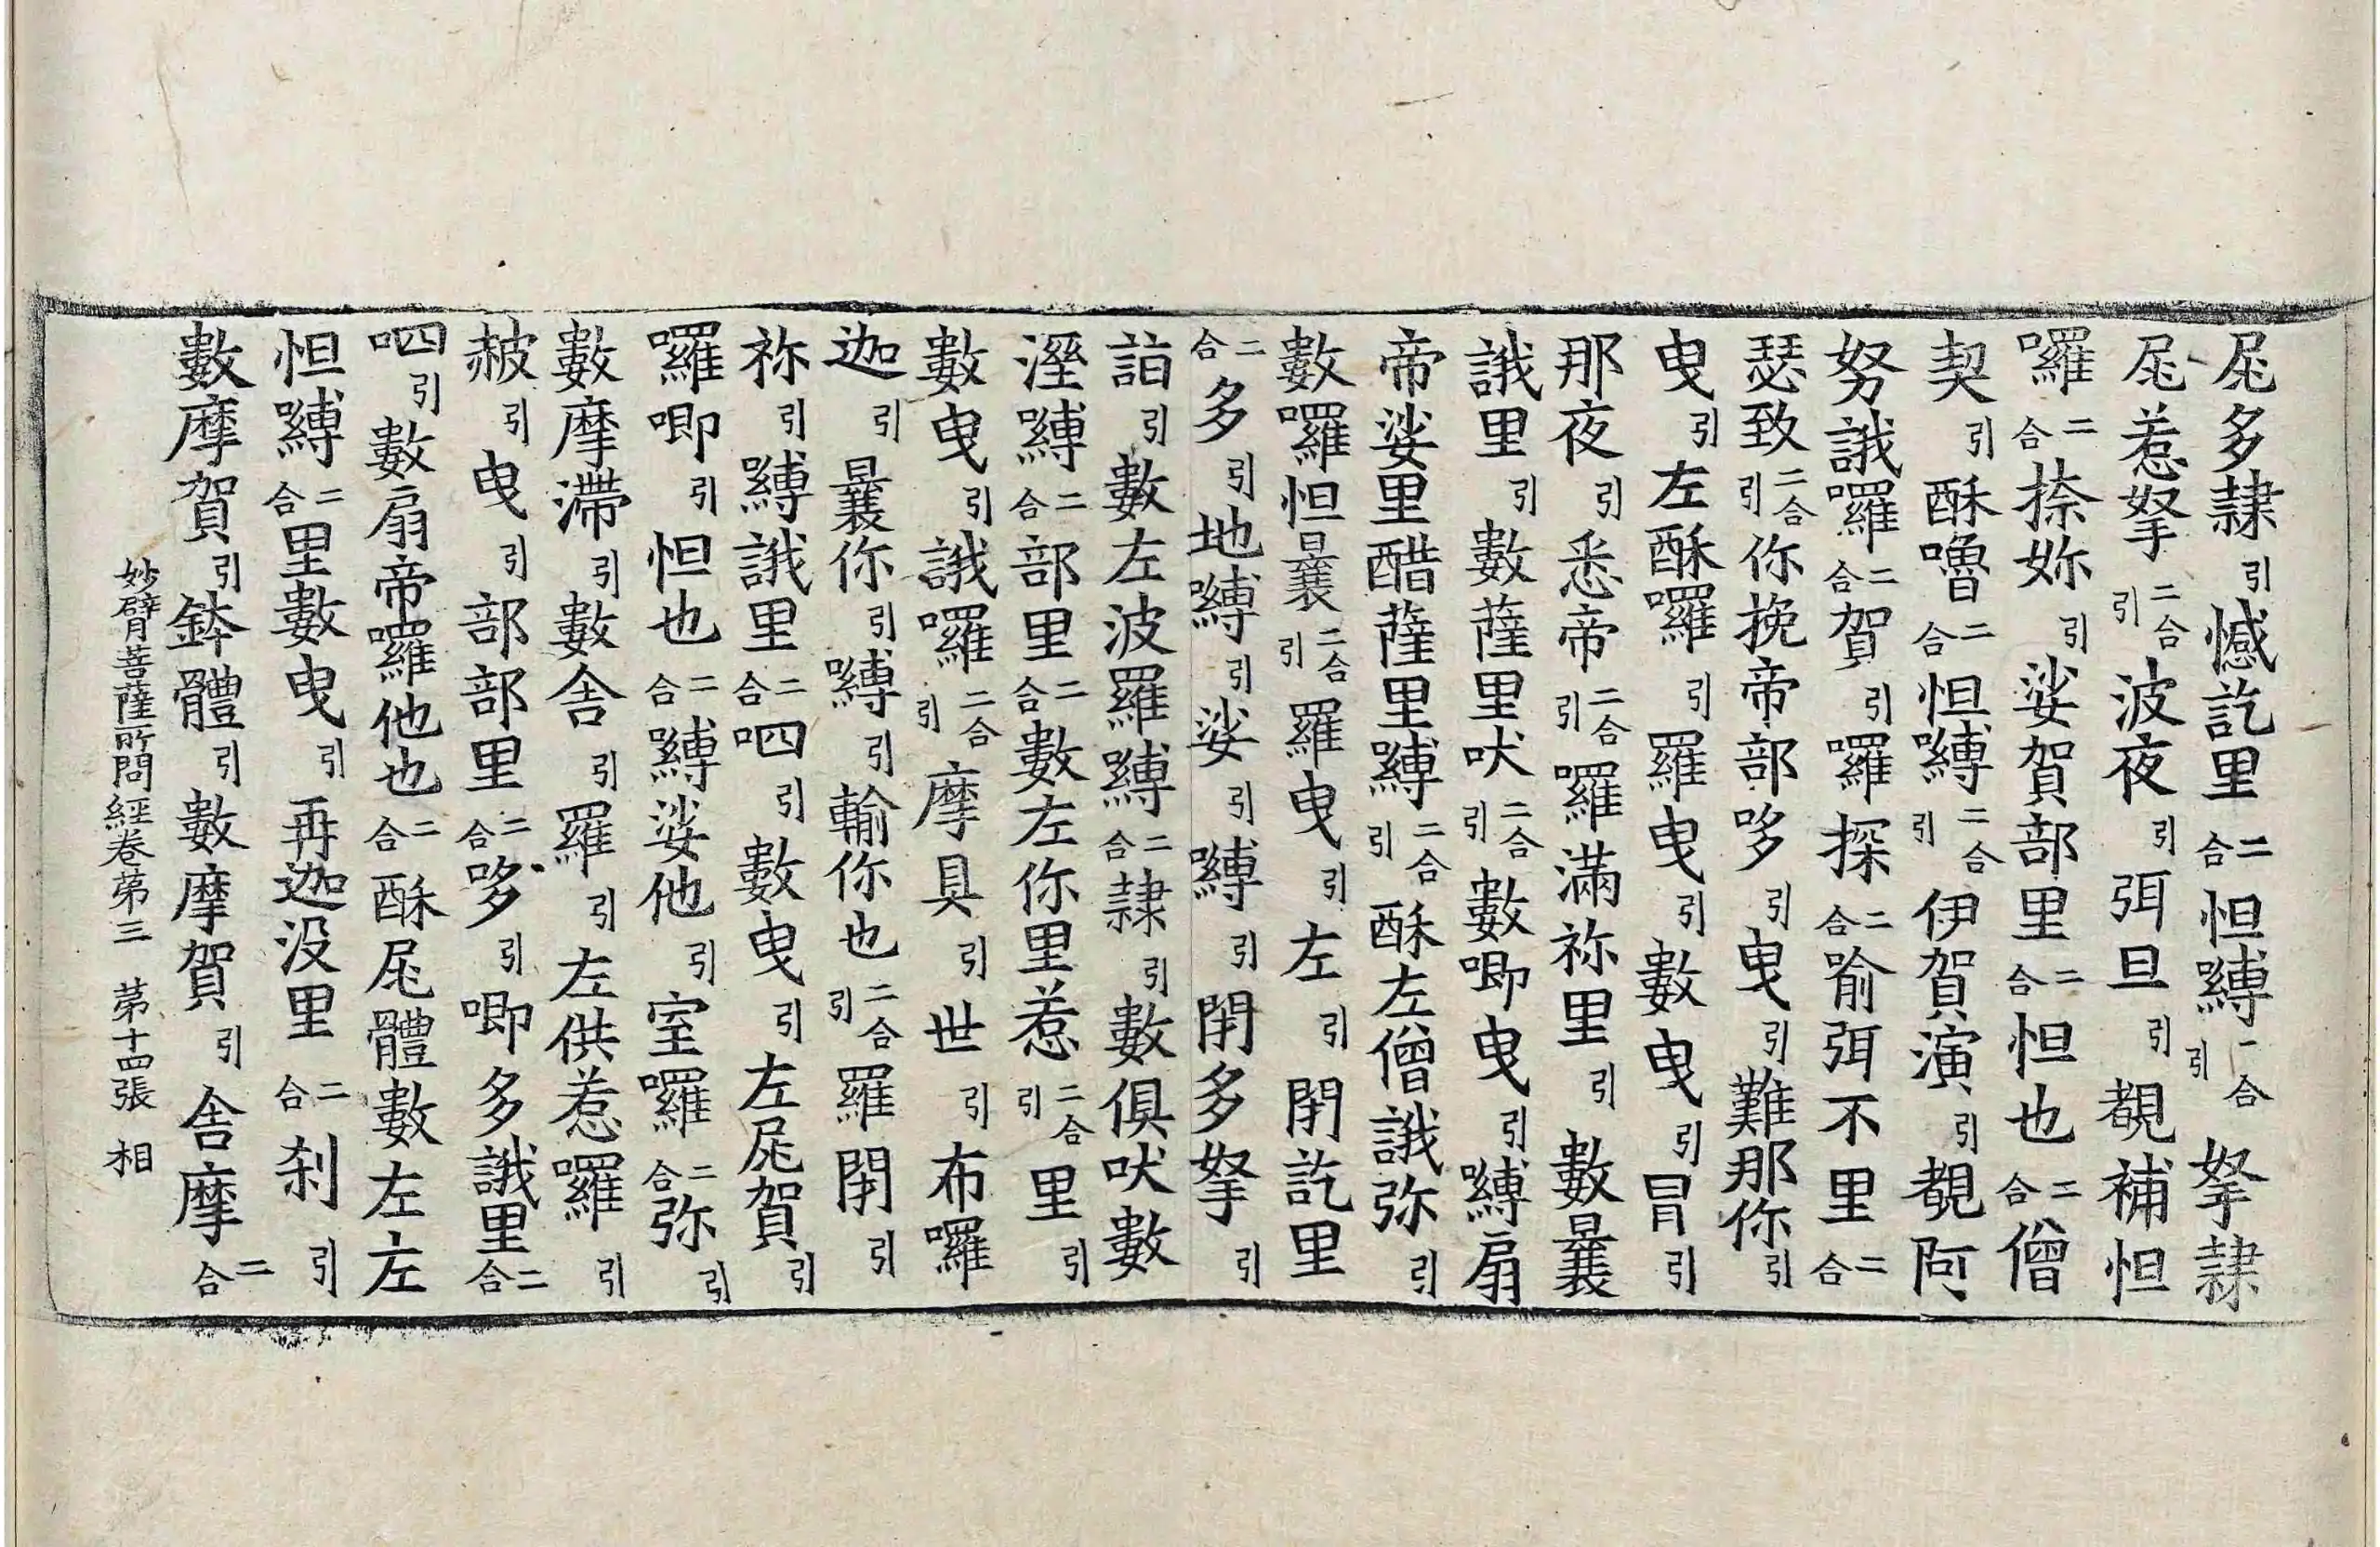 屁多隷引憾訖里二合怛嚩一合引拏隷
屁惹拏二合引波夜引弭旦引覩補怛
囉二合捺妳引娑賀部里二合怛也二合僧
契引酥嚕二合怛嚩二合引伊賀演引覩阿
努誐囉二合賀引囉探二合喻弭不里二合
瑟致二合引你挽帝部哆引曳引難那你引
曳引左酥囉引羅曳引數曳引冐引
那夜引悉帝二合引囉滿祢里引數曩
誐里引數薩里吠二合引數唧曳引嚩扇
帝娑里醋薩里嚩二合引酥左僧誐弥引
數囉怛曩二合引羅曳引左引閉訖里
二合多引地嚩引娑引嚩引閉多拏引
詣引數左波羅嚩二合隷引數俱吠數
溼嚩二合部里二合數左你里惹二合引里引
數曳引誐囉二合引摩具引世引布囉
迦引曩你引嚩引輸你也二合引羅閉引
祢引嚩誐里二合呬引數曳引左屁賀引
囉唧引怛也二合嚩娑他引室囉二合弥引
數摩滯引數舍引羅引左供惹囉引
赧引曳引部部里二合哆引唧多誐里二合
呬引數扇帝囉他也二合酥屁體數左左
怛嚩二合里數曳引再迦没里二合刹引
數摩賀引鉢體引數摩賀引舍摩二合
妙臂菩薩所問經卷第三　第十四張　相